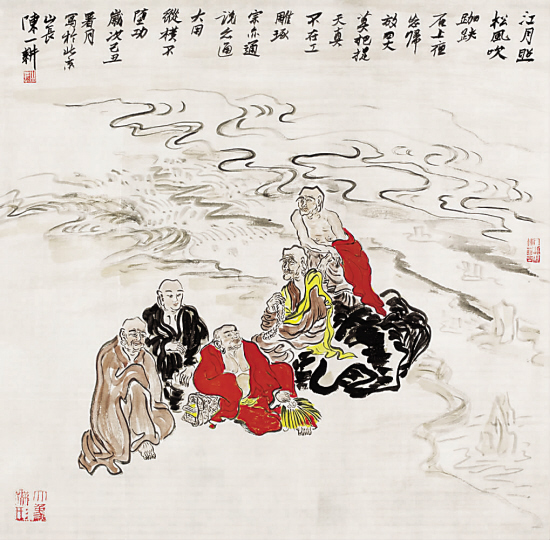 江月照
松風吹
跏趺
石上
忘歸
放四大
莫把捉
天真
不在工
雕琢
宗亦通
說亦通
大用
縱橫不
墮功
歲次己丑
署月
寫於北京
山長
陳一耕